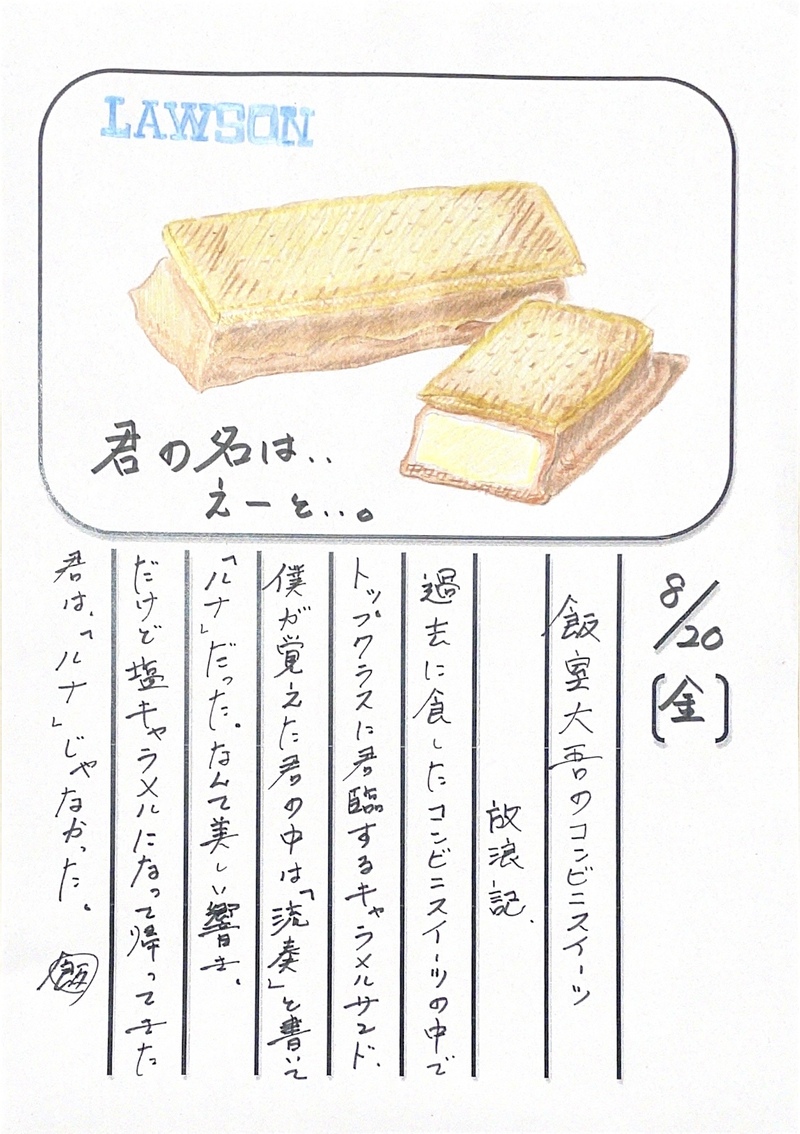 LAWSON
君の名は‥
えーと‥。
8/20
[金]
飯室大吾のコンビニスイーツ
放浪記.
過去に食したコンビニスイーツの中で
トップクラスに君臨するキャラメルサンド.
僕が覚えた君の中は「流奏」と書いて
「ルナ」だった。なんて美しい響き.
だけど塩キャラメルになって帰ってきた
君は、「ルナ」じゃなかった。
飯